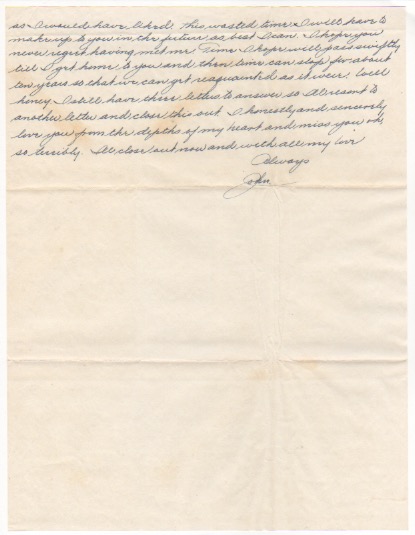 as I would have liked. This wasted time I will have to
make up to you in the future as best I can. I hope you
never regret having met me. Time I hope will pass swiftly
till I get home to you and then time can stop for about
ten years so that we can get reaquainted as it were. Well
honey I still have three letters to answer so I'll resort to
another letter and close this out. I honestly and sincerely
love you from the depths of my heart and miss you oh,
so terribly. I'll close out now and with all my love
Always
John